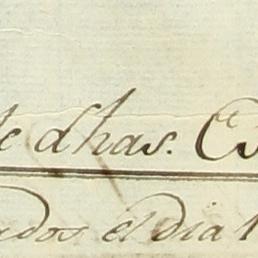 de dhas. C
ados el dia 1